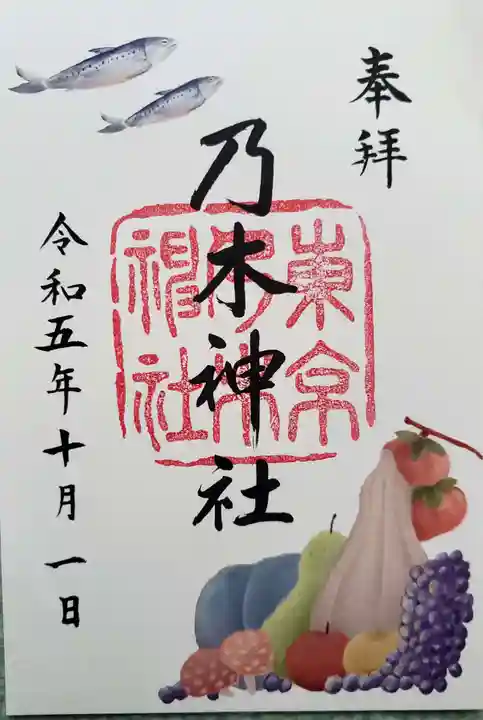 奉拝
乃木神社
東京
乃木
神社
令和五年十月一日